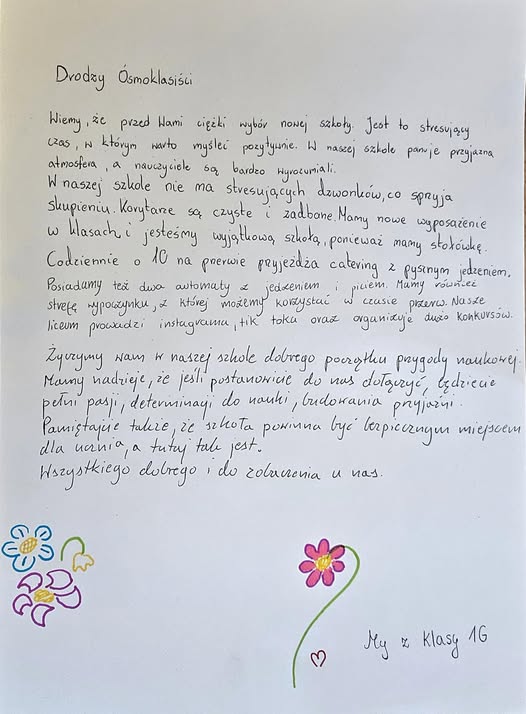 Drodzy Ósmoklasiści
Wiemy, że przed Wami ciężki wybór nowej szkoły. Jest to stresujący
czas, w którym warto myśleć pozytywnie. W naszej szkole panuje przyjazna
atmosfera, a nauczyciele są bardzo wyrozumiali.
W naszej szkole nie ma stresujących dzwonków, co sprzyja
skupieniu. Korytarze są czyste i zadbane. Mamy nowe wyposażenie
w klasach, i jesteśmy wyjątkową szkołą, ponieważ mamy stołówkę.
Codziennie o 10 na przerwie przyjeżdża catering z pysznym jedzeniem.
Posiadamy też dwa automaty z jedzeniem i piciem. Mamy również
strefę wypoczynku, z której możemy korzystać w czasie przerw. Nasze
liceum prowadzi instagrama, tik toka oraz organizuje dużo konkursów.
Życzymy wam w naszej szkole dobrego początku przygody naukowej.
Mamy nadzieje, że jeśli postanowicie do nas dołączyć, będziecie
pełni pasji, determinacji do nauki, budowania przyjaźni.
Pamiętajcie także, że szkoła powinna być bezpiecznym miejscem
dla ucznia, a tutaj tak jest.
Wszystkiego dobrego i do zobaczenia u nas.
My z klasy 1G